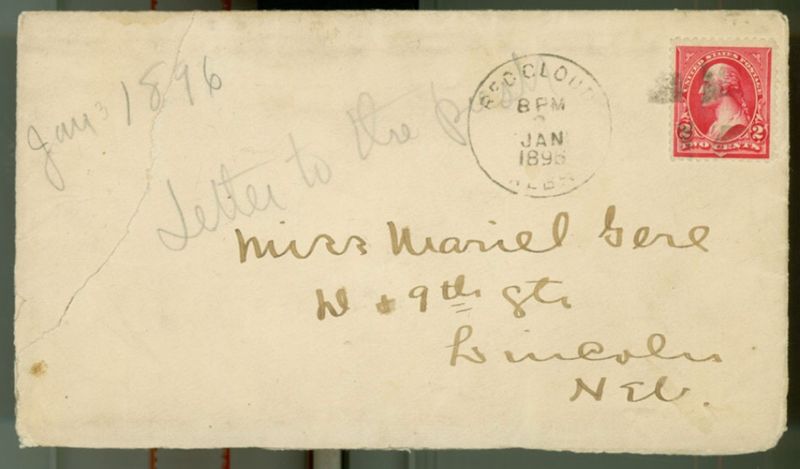 Jan 3 1896
Letter to the
RED CLOUD
8 PM
JAN
1896
NEBR
UNITED STATES POSTAGE
2 2
TWO CENTS
Miss Mariel Gere
D + 9th Sts
Lincoln
Neb.